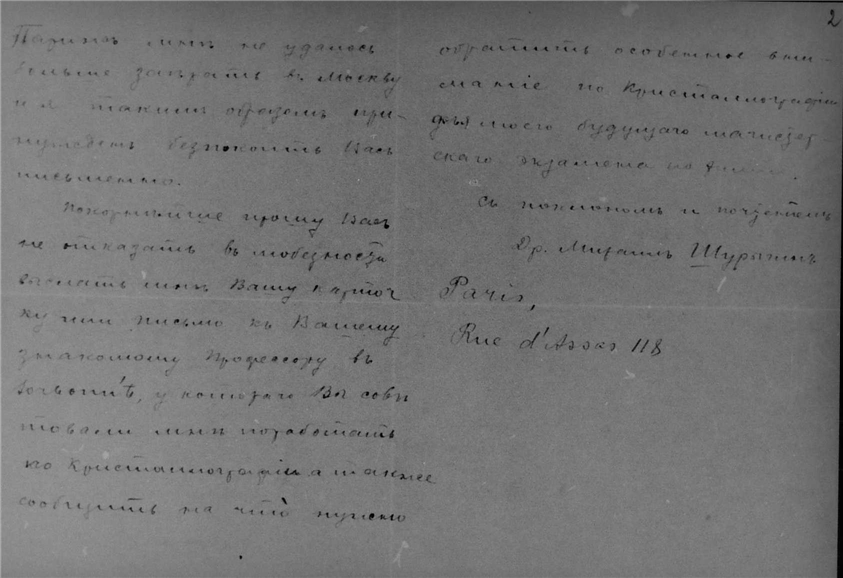 2
Парижъ мнѣ не удалось
больше заѣхать въ Москву
и я такимъ образомъ при-
нужденъ безпокоить Васъ
письменно.
Покорнѣйше прошу Васъ
не отказать въ любезности
выслать мнѣ Вашу карточ
ку или письмо къ Вашему
знакомому профессору въ
Сорбоннѣ, у котораго Вы совѣ
товали мнѣ поработать
по Кристаллографіи а также
сообщить на что нужно
обратить особенное вни-
маніе по Кристаллографіи
для моего будущаго магистер-
скаго экзамена по
Съ поклономъ и почтеніемъ
Др. Михаилъ Шурыгинъ
Paris,
Rue d'Assas 118